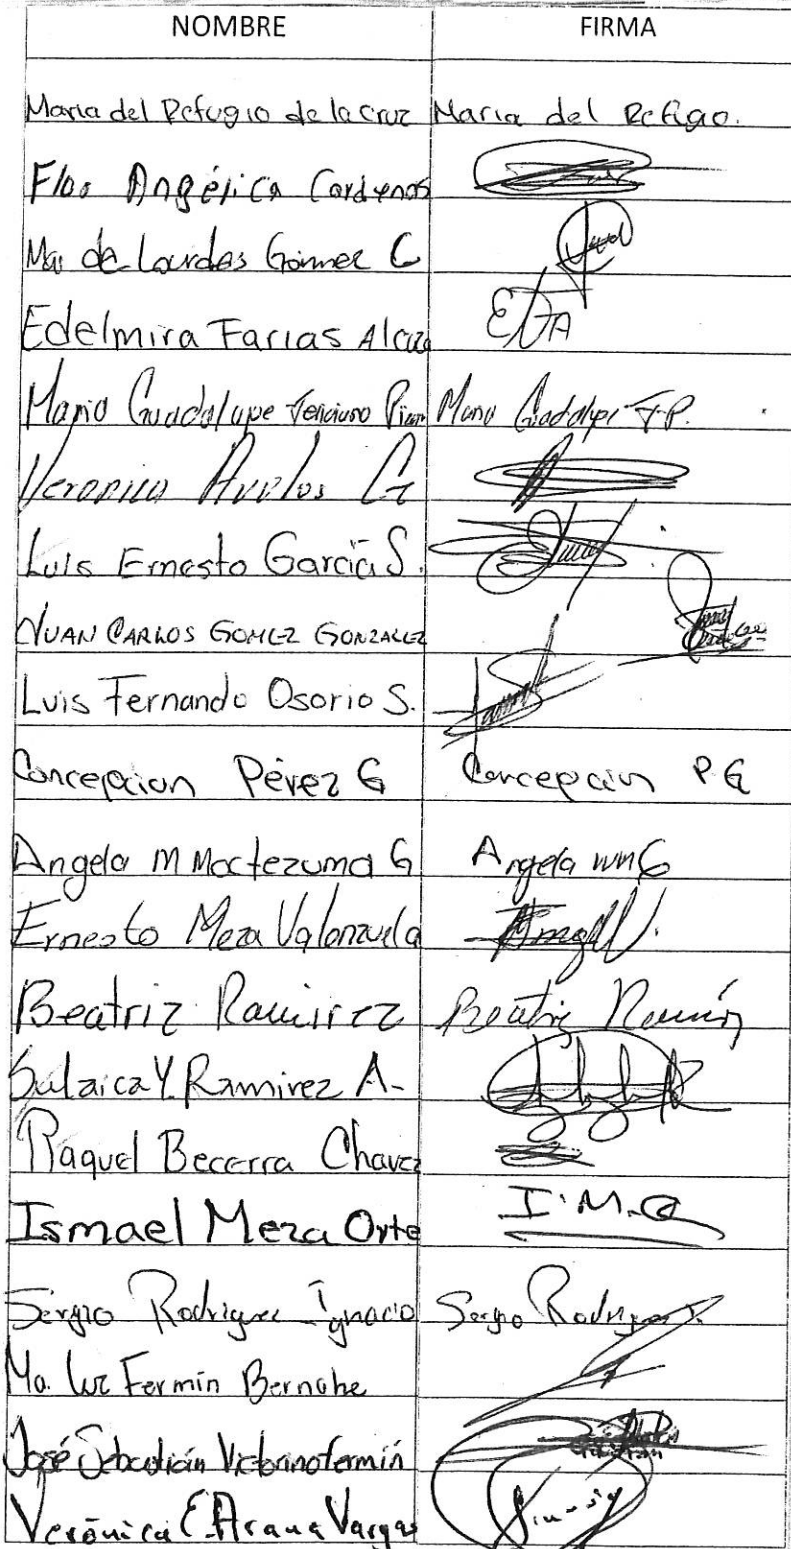 NOMBRE FIRMA
Maria del Refugio de la Cruz Maria del Refigio.
Flor Angélica Cardenas
Ma de Lourdes Gómez C
Edelmira Farias Alcaza EFA
Maria Guadalupe Feliciano Maria Guadalupe F.P.
Veronica Avelos G
Luis Ernesto García S.
JUAN CARLOS GOMEZ GONZALEZ
Luis Fernando Osorio S.
Concepcion Pérez G Concepcion P.G
Angela M Moctezuma G Angela MMG
Ernesto Meza Valenzuela
Beatriz Ramirez Beatriz
Sulaica Y. Ramirez A.
Raquel Becerra Chavez
Ismael Meza Orte I.M.O
Sergio Rodriguez Ignacio Sergio Rodriguez
Ma. Luz Fermin Bernabe
José Sebastián Victorino fermín
Verónica E. Arana Vargas